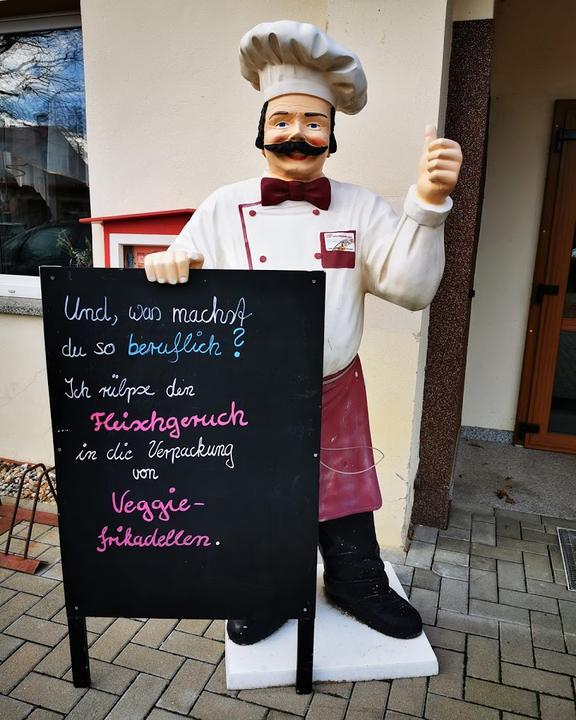 Und, was machst
du so beruflich?
Ich rülpse den
Fleischgeruch
in die Verpackung
von
Veggie-
frikadellen.